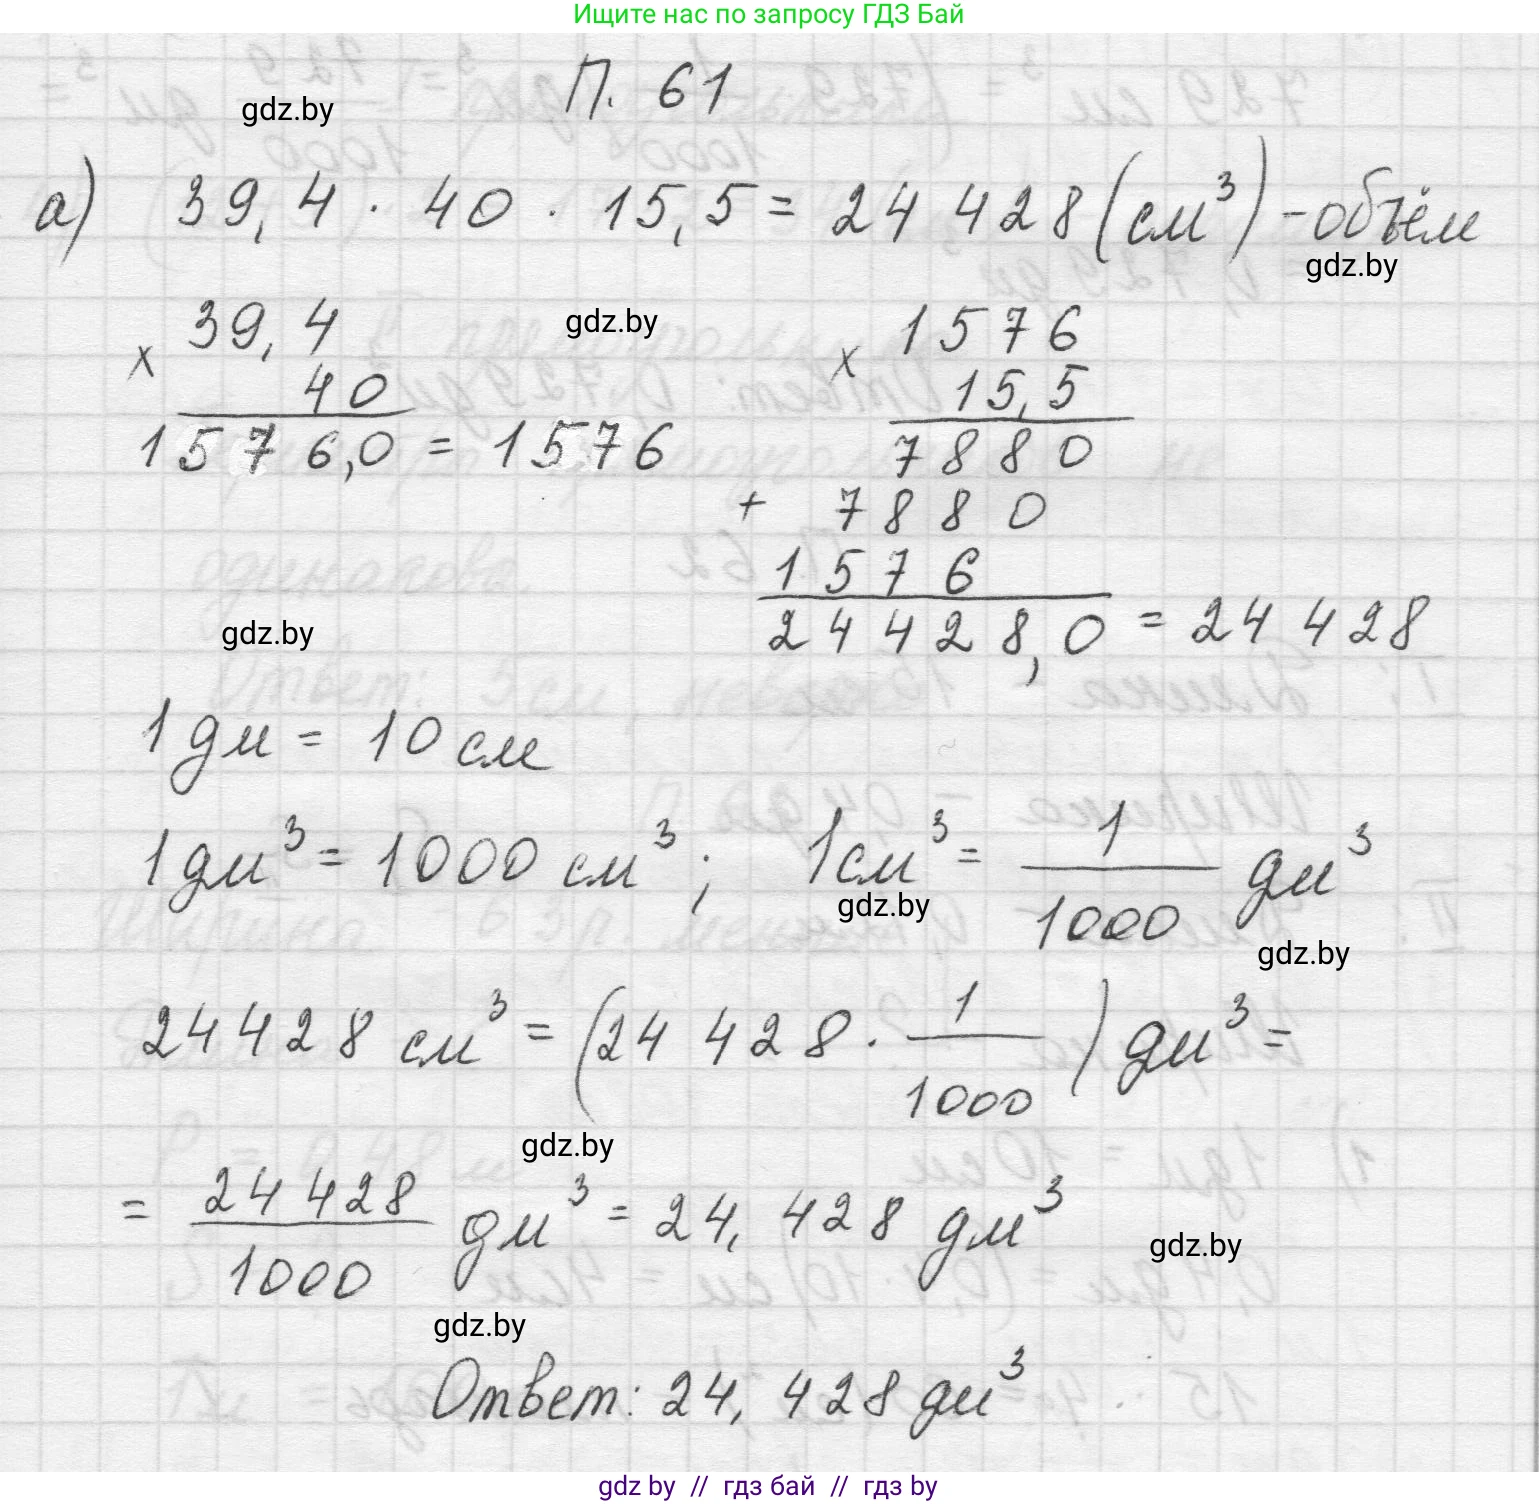 Ищите нас по запросу ГДЗ Бай
П. 61
gdz.by
а) 39,4 · 40 · 15,5 = 24 428 (см³) - объём
gdz.by
39,4
gdz.by
1576
х
х
40
15,5
1576,0 = 1576
7880
+ 7880
1576
gdz.by
24428,0 = 24 428
1 дм = 10 см
1 дм³ = 1000 см³ ; 1 см³ = 1/1000 дм³
gdz.by
gdz.by
24 428 см³ = (24 428 · 1/1000) дм³ =
gdz.by
= 24 428/1000 дм³ = 24,428 дм³
gdz.by
gdz.by
Ответ: 24,428 дм³
gdz by // гдз бай // гдз by